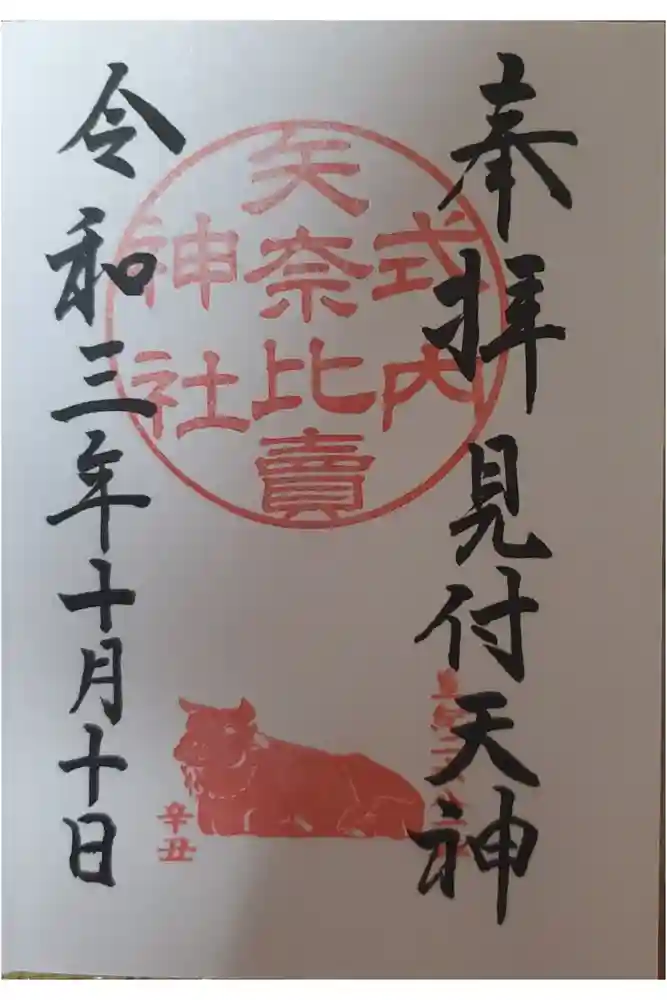 奉拝 見付天神
式内
矢奈比賣
神社
辛丑
令和三年十月十日